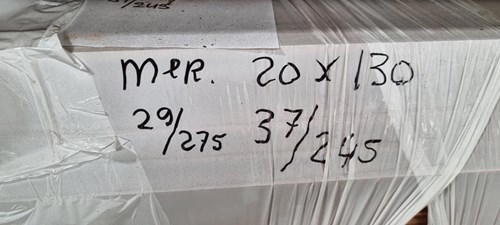 MER. 20 x 130
29/275 37/245